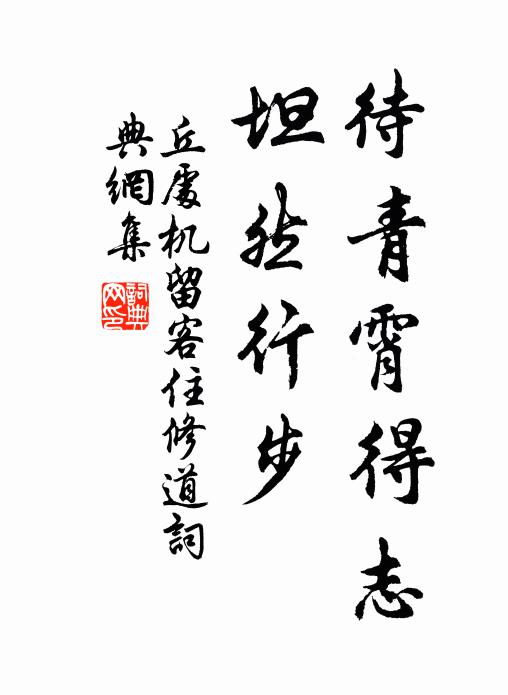 待青霄得志
坦然行步
丘處机留客住修道詞
典網集
詞典网印